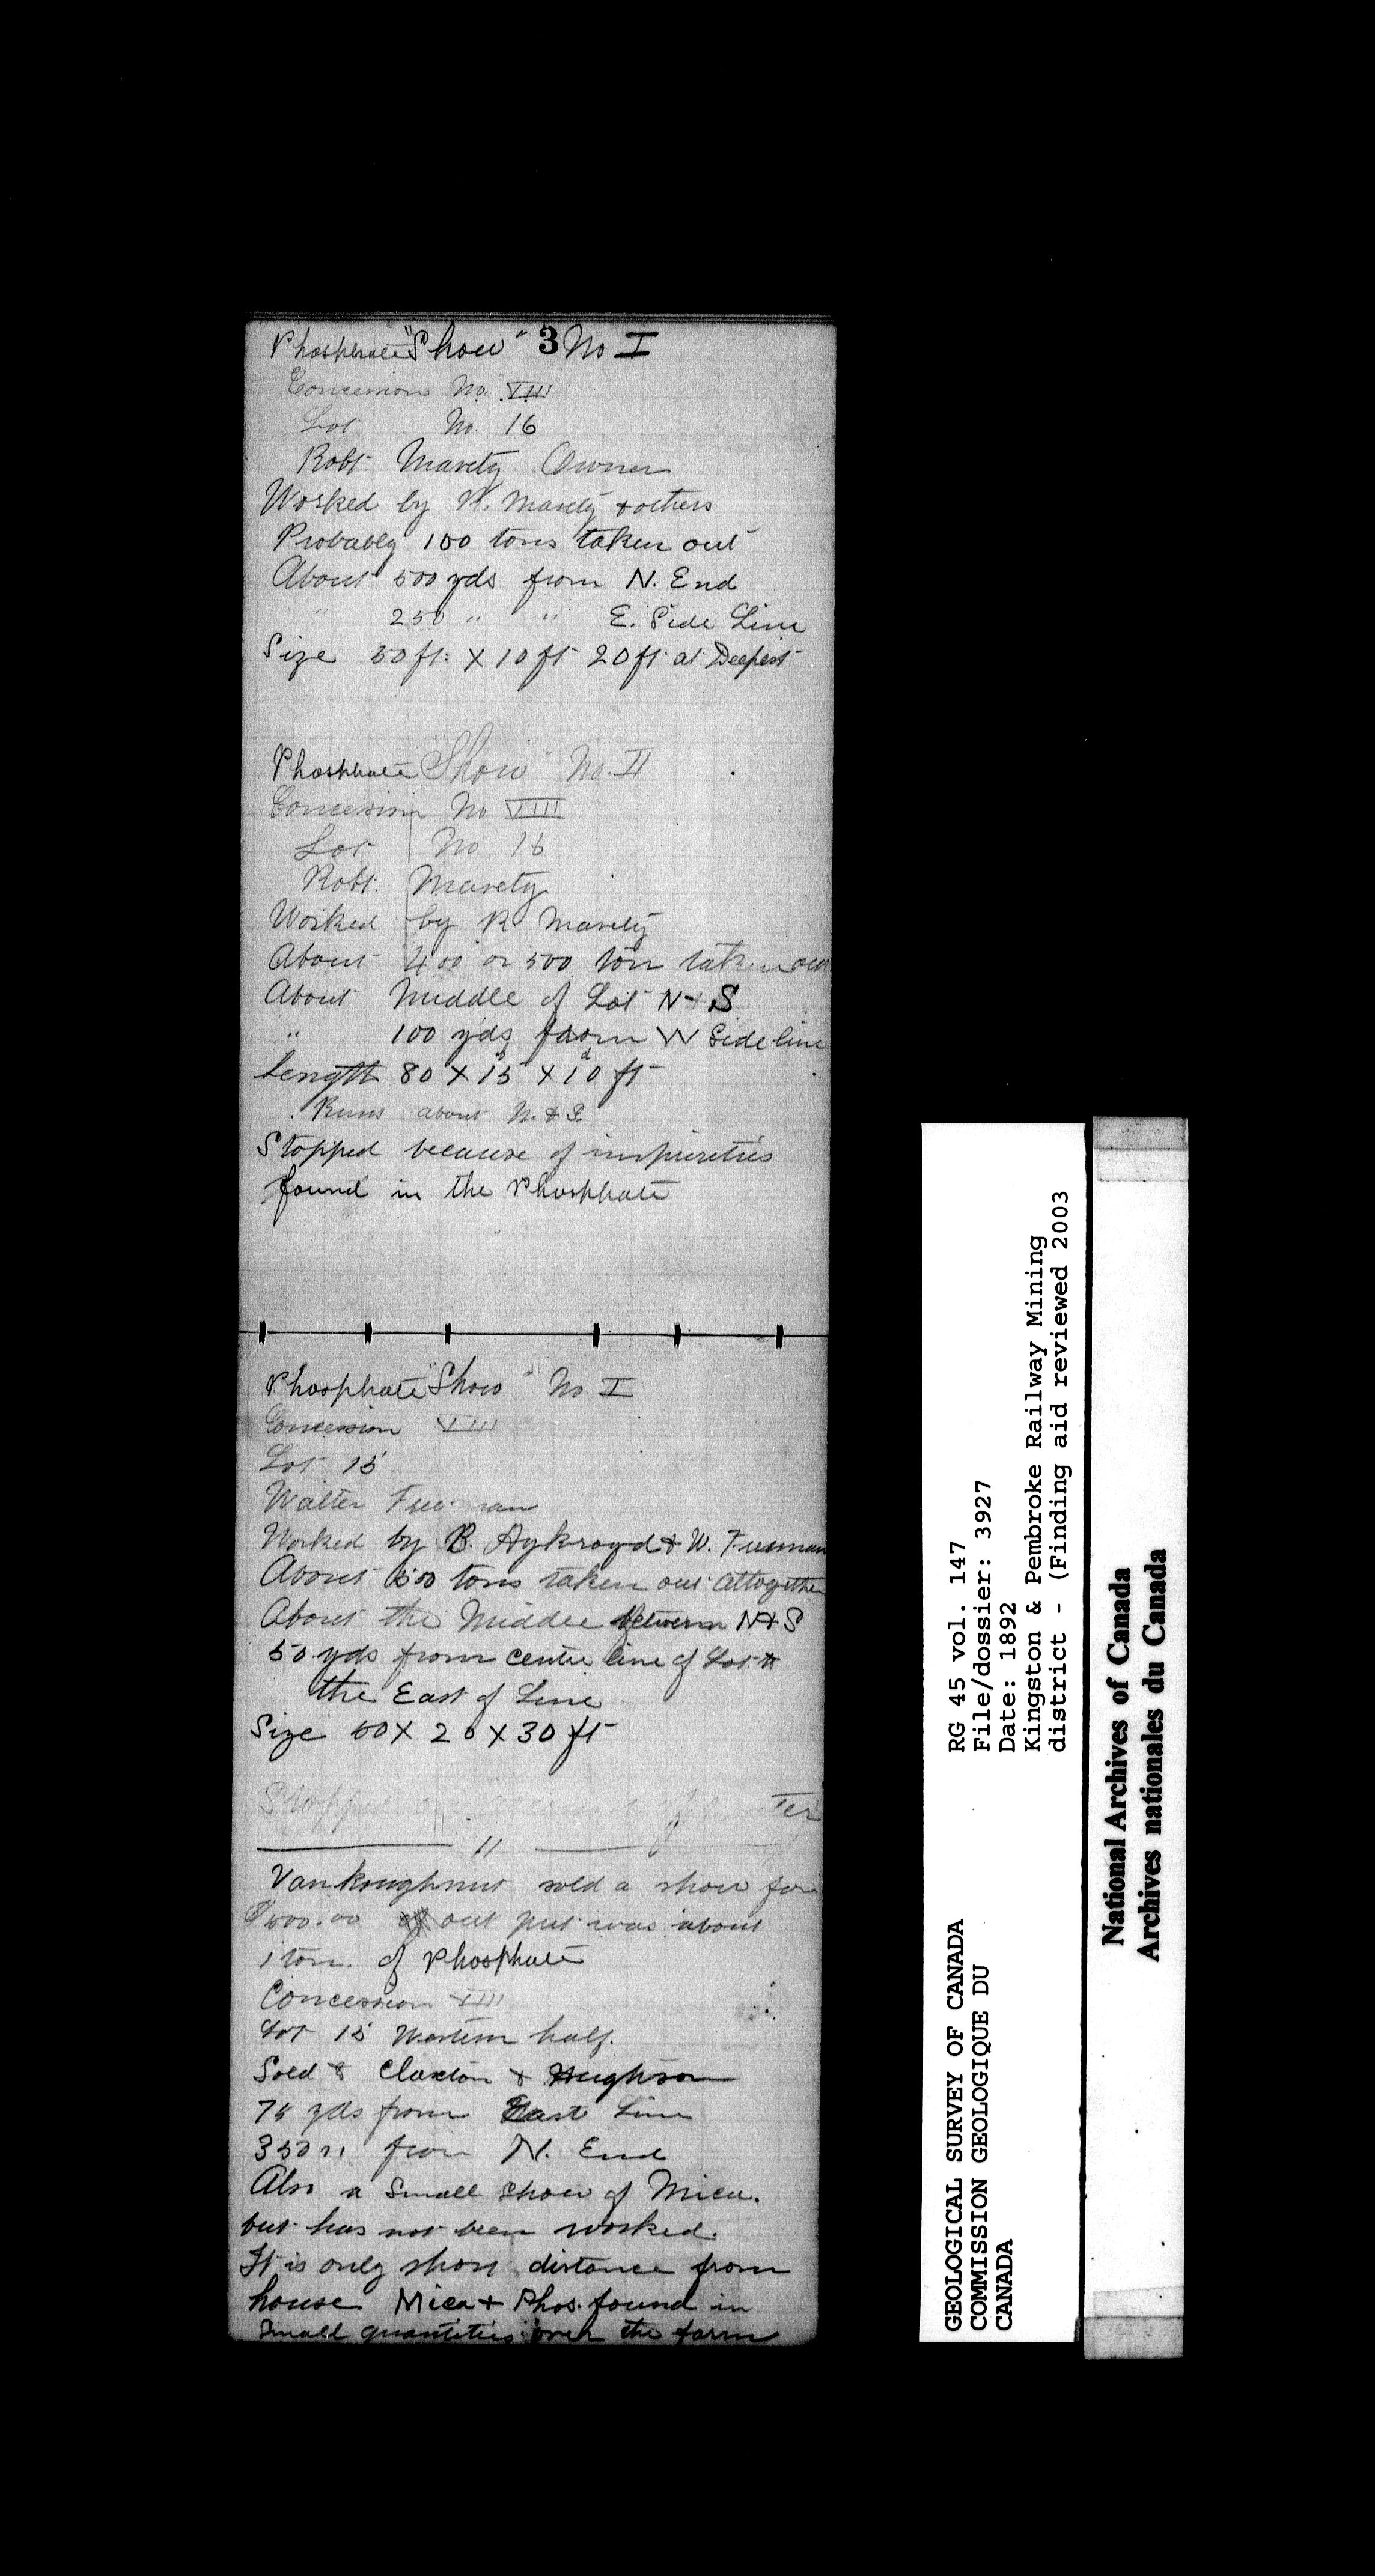 Phosphate "Show" 3 No I
Concession No. VIII
Lot No. 16
Robt. Mavety Owner
Worked by R. Mavety & others
Probably 100 tons taken out
About 500 yds from N. End
" 250 " " E. Side Line
Size 50 ft. X 10 ft 20 ft at Deepest
Phosphate "Show" No. II
Concession No VIII
Lot No 16
Robt. Mavety
Worked by R Mavety
About 400 or 500 ton taken out
About Middle of Lot N & S
" 100 yds from W Side line
Length 80 X 15 X 10 ft
Runs about N. & S.
Stopped because of impurities
found in the Phosphate
Phosphate "Show" No. I
Concession VIII
Lot 15
Walter Freeman
Worked by B. Aykroyd & W. Freeman
About 500 tons taken out altogether
About the Middle between N & S
50 yds from centre line of Lot to
the East of Line
Size 50 X 20 X 30 ft
Stopped
"
Vankoughnut sold a show for
$500.00 out put was about
1 ton of Phosphate
Concession VIII
Lot 15 Western half.
Sold to Claxton & Hughson
75 yds from East Line
350 " from N. End
Also a small show of Mica.
but has not been worked.
It is only short distance from
house Mica & Phos. found in
small quantities over the farm
GEOLOGICAL SURVEY OF CANADA
COMMISSION GEOLOGIQUE DU
CANADA
RG 45 vol. 147
File/dossier: 3927
Date: 1892
Kingston & Pembroke Railway Mining
district - (Finding aid reviewed 2003
National Archives of Canada
Archives nationales du Canada